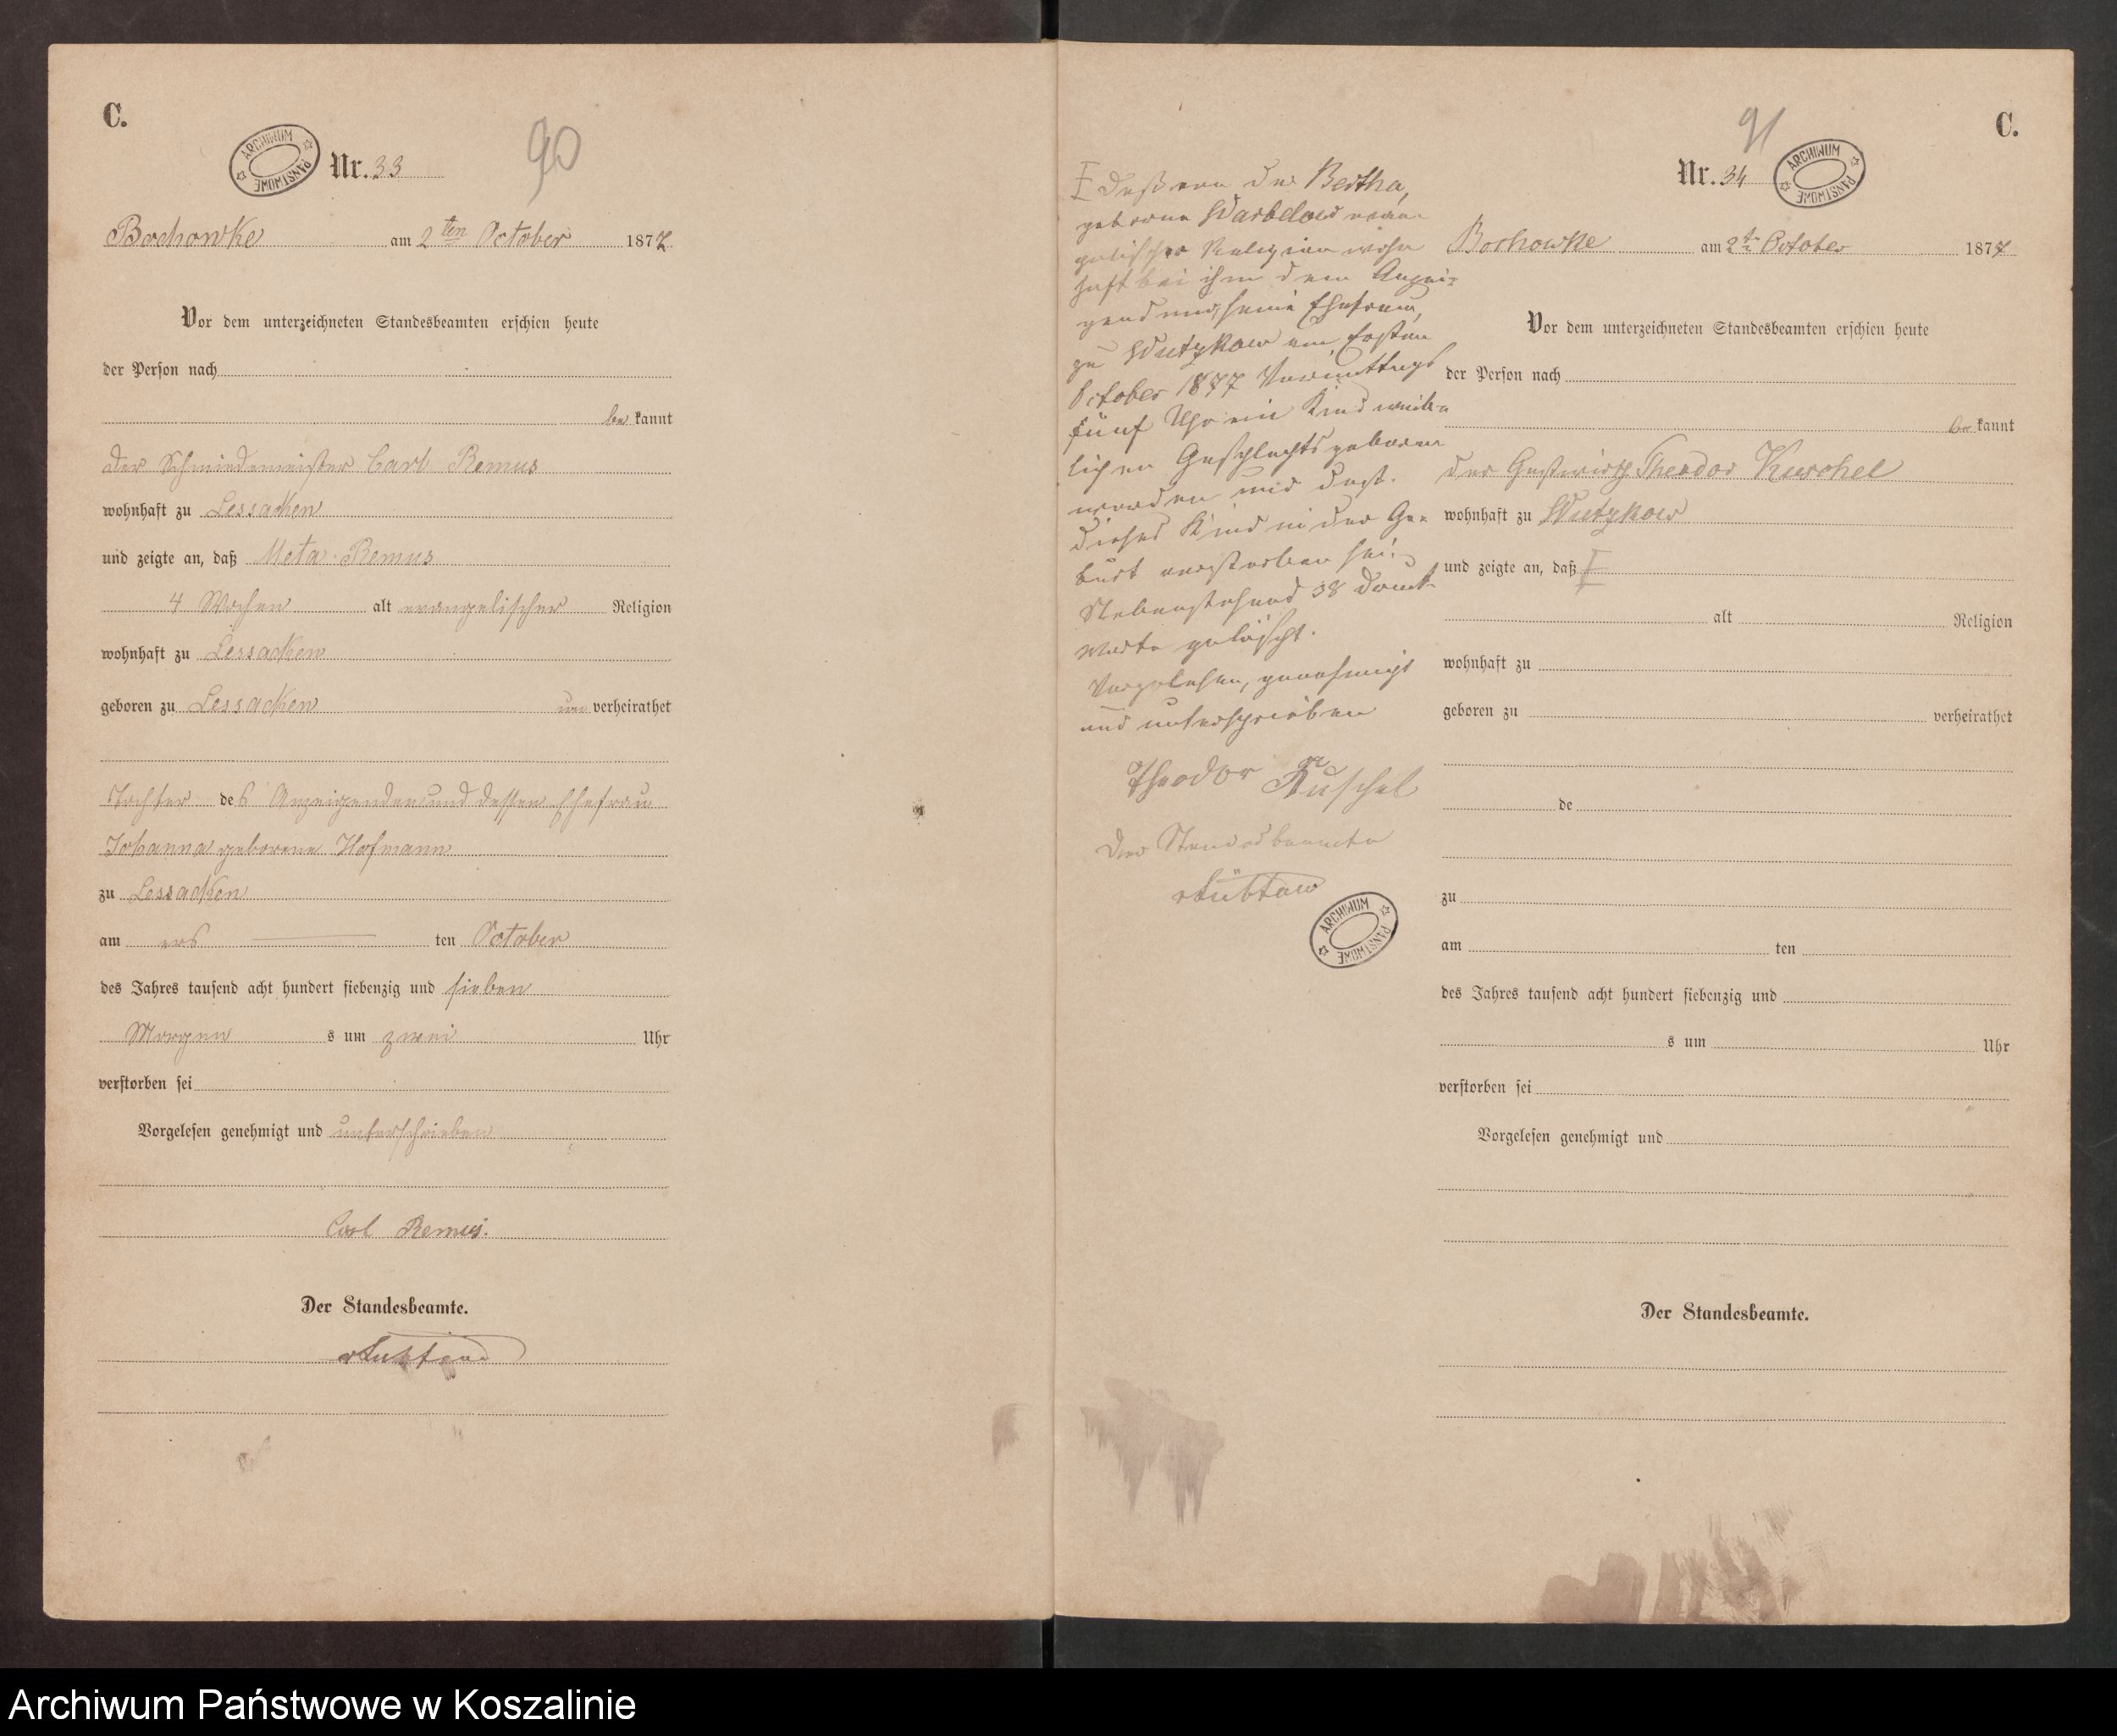 C.
ARCHIWUM PAŃSTWOWE
Nr. 33
90
Bochowke am 2ten October 1877
Vor dem unterzeichneten Standesbeamten erschien heute
der Person nach
be kannt
der Schmiedemeister Carl Remus
wohnhaft zu Lessacken
und zeigte an, daß Meta Remus
4 Wochen alt evangelischer Religion
wohnhaft zu Lessacken
geboren zu Lessacken un verheirathet
Tochter des Anzeigenden und dessen Ehefrau
Johanna geborene Hofmann
zu Lessacken
am ers ten October
des Jahres tausend acht hundert siebenzig und sieben
Morgen s um zwei Uhr
verstorben sei
Vorgelesen genehmigt und unterschrieben
Carl Remus.
Der Standesbeamte.
C.
91
Nr. 34
ARCHIWUM PAŃSTWOWE
Bochowke am 2tn October 1877
Vor dem unterzeichneten Standesbeamten erschien heute
der Person nach
be kannt
der Gastwirth Theodor Kuschel
wohnhaft zu Wutzkow
und zeigte an, daß
alt Religion
wohnhaft zu
geboren zu verheirathet
de
zu
am ten
des Jahres tausend acht hundert siebenzig und
s um Uhr
verstorben sei
Vorgelesen genehmigt und
Der Standesbeamte.
daß von der Bertha,
geborne Warbelow evan-
gelischer Religion wohn
haft bei ihm dem Anzei-
genden, seine Ehefrau,
zu Wutzkow am Ersten
October 1877 Vormittags
fünf Uhr ein Kind weib-
lichen Geschlechts geboren
worden und daß
dieses Kind in der Ge-
burt verstorben sei.
Nebenstehend 38 Druck-
worte gelöscht.
Vorgelesen, genehmigt
und unterschrieben
Theodor Kuschel
Der Standesbeamte
ARCHIWUM PAŃSTWOWE
Archiwum Państwowe w Koszalinie